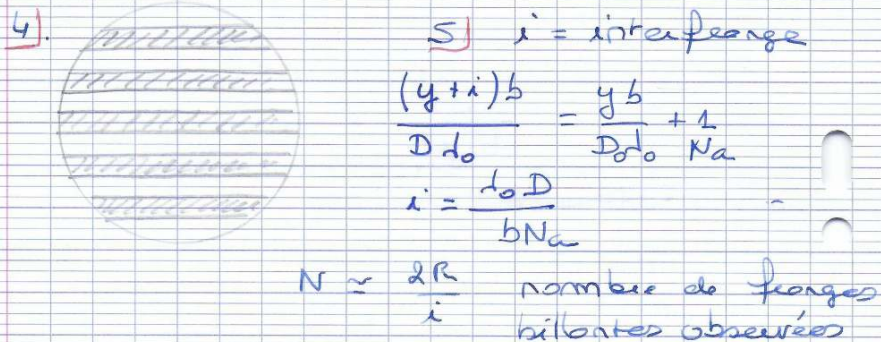 4].
5] i = interfrange
(y + i) b / D λ₀ = y b / D₀ λ₀ + 1 / Na
i = λ₀ D / b Na
N ≃ 2R / i nombre de franges
billantes observées